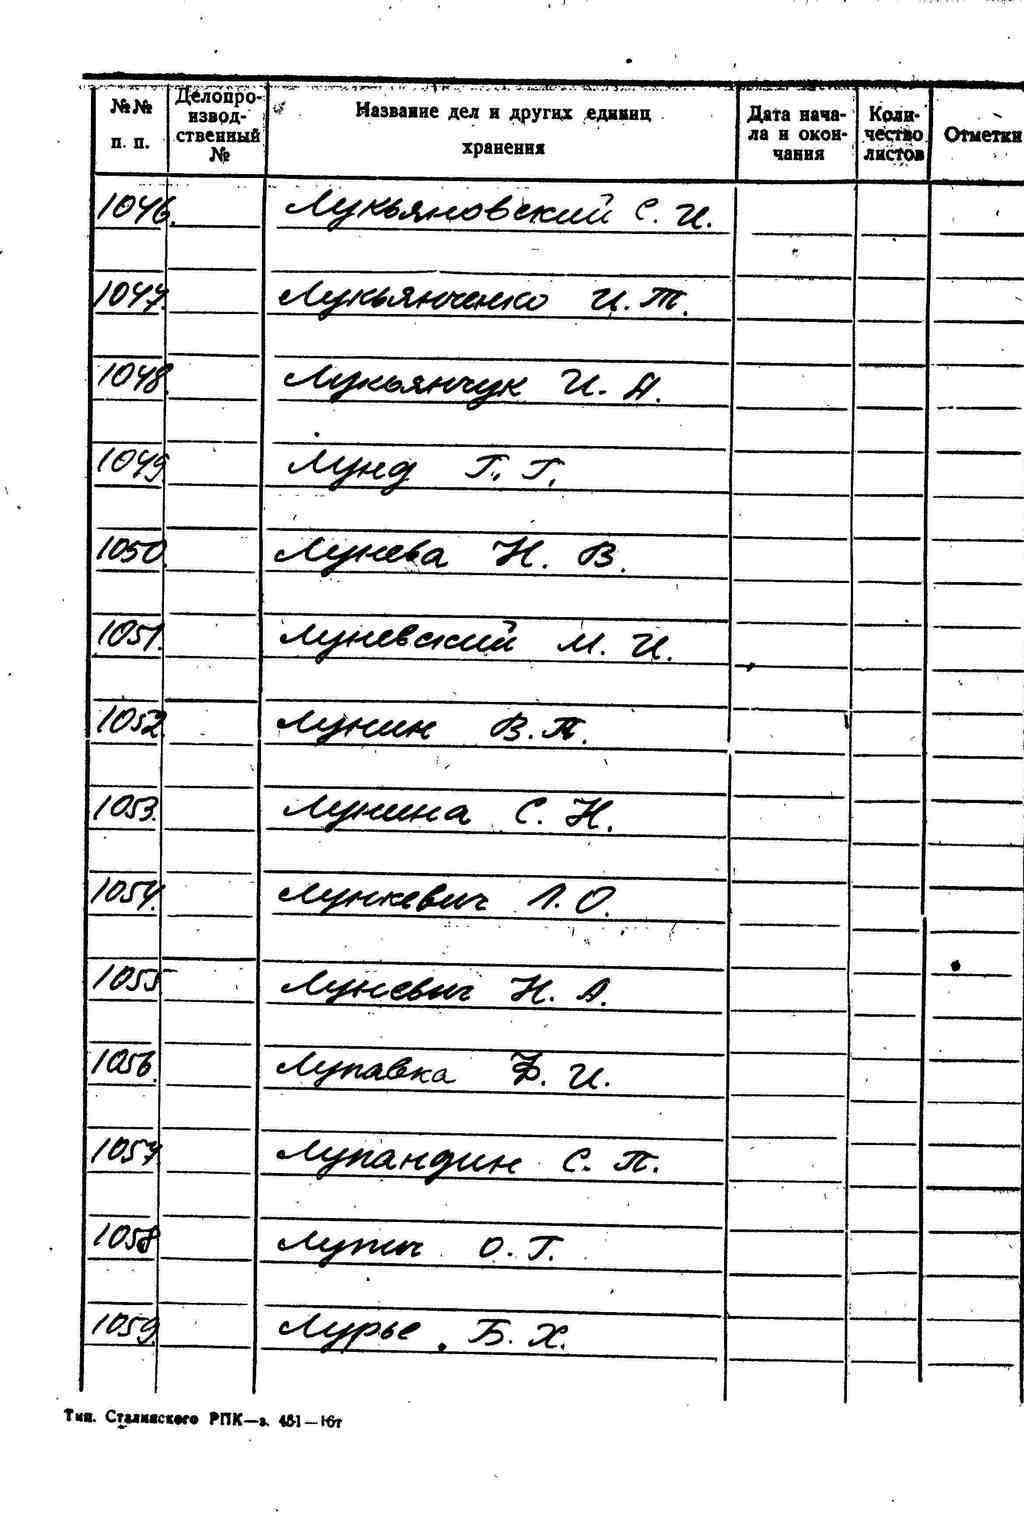 №№ п. п. Делопроизводственный № Название дел и других единиц хранения Дата начала и окончания Количество листов Отметки
1046. Лукьяновский С. И.
1047. Лукьянченко И. Т.
1048. Лукьянчук И. А.
1049. Лунд Г. Г.
1050. Лунева Н. В.
1051. Луневский М. И.
1052. Лунин В. П.
1053. Лунина С. Н.
1054. Лункевич Л. О.
1055 Луневич Н. А.
1056. Лупавка Ф. И.
1057. Лупандин С. П.
1058 Лупич О. Г.
1059. Лурье Б. Х.
Тип. Сталинского РПК—з. 451—16т